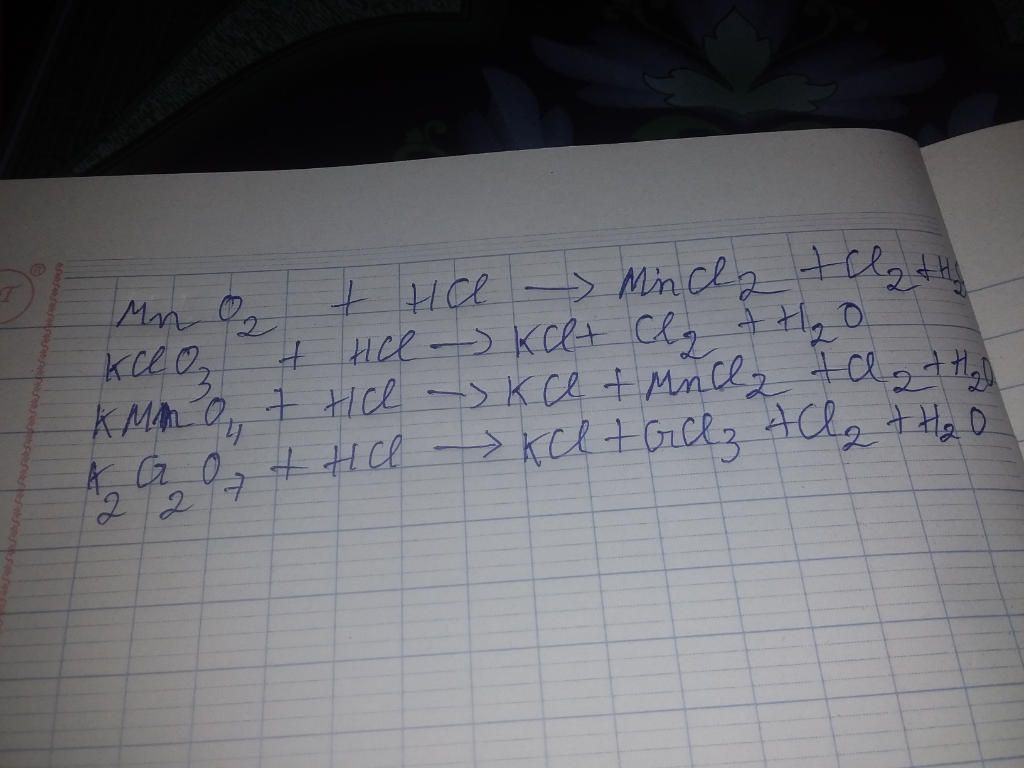 MnO2 + HCl → MnCl2 + Cl2 + H2
KClO3 + HCl → KCl + Cl2 + H2O
KMnO4 + HCl → KCl + MnCl2 + Cl2 + H2O
K2Cr2O7 + HCl → KCl + CrCl3 + Cl2 + H2O